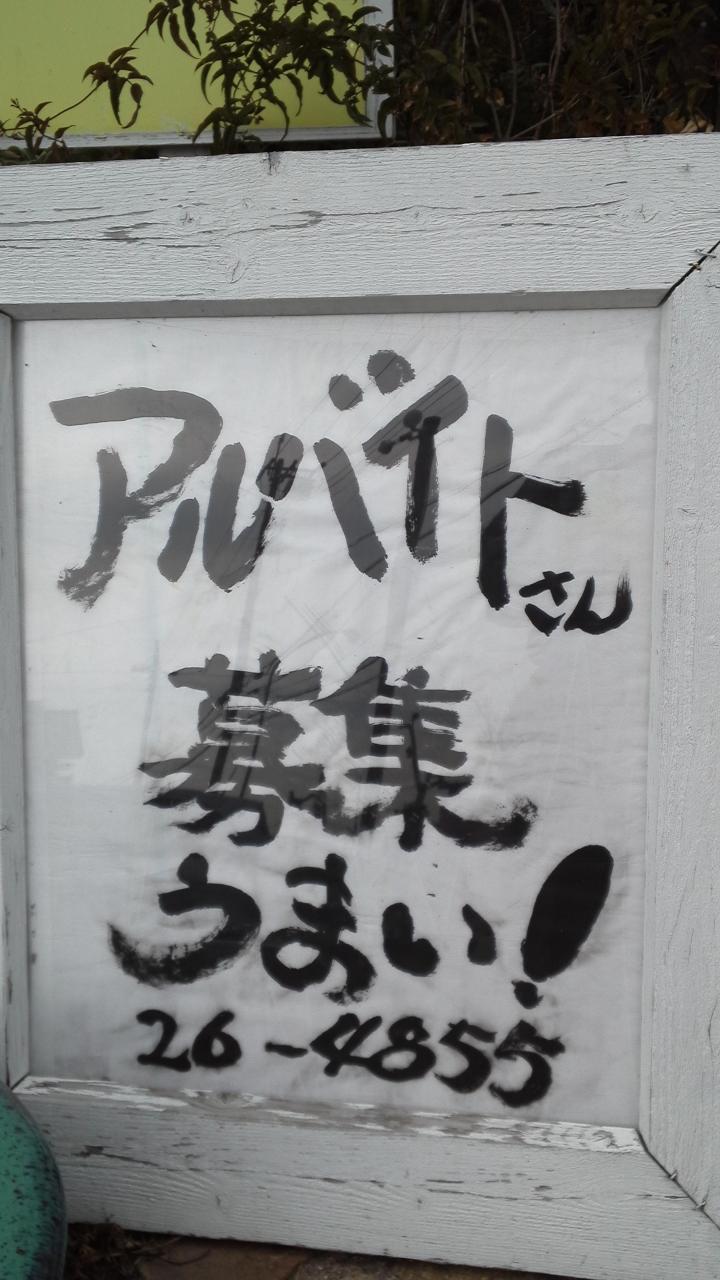 アルバイトさん
募集
うまい!
26-4855